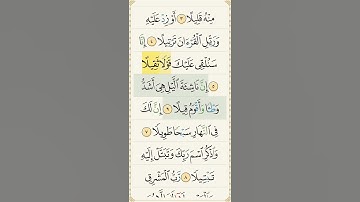 مِنْهُ قَلِيلًا ٣ أَوْ زِدْ عَلَيْهِ
وَرَتِّلِ ٱلْقُرْءَانَ تَرْتِيلًا ٤ إِنَّا
سَنُلْقِى عَلَيْكَ قَوْلًا ثَقِيلًا
٥ إِنَّ نَاشِئَةَ ٱلَّيْلِ هِىَ أَشَدُّ
وَطْـًٔا وَأَقْوَمُ قِيلًا ٦ إِنَّ لَكَ
فِى ٱلنَّهَارِ سَبْحًا طَوِيلًا ٧
وَٱذْكُرِ ٱسْمَ رَبِّكَ وَتَبَتَّلْ إِلَيْهِ
تَبْتِيلًا ٨ رَّبُّ ٱلْمَشْرِقِ